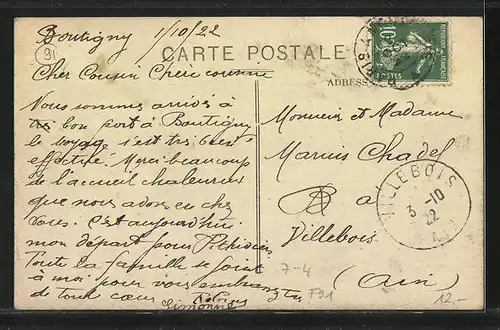 Boutigny 1/10/22
CARTE POSTALE
Cher Cousin Chère cousine
ADRESSE
Nous sommes arrivés à
bon port à Boutigny
le voyage s'est très bien
effectué. Merci beaucoup
de l'accueil chaleureux
que nous avons eu chez
vous. C'est aujourd'hui
mon départ pour Pithiviers
Toute la famille se joint
à moi pour vous embrasser
de tout cœur
Simonne
Monsieur et Madame
Marius Chadel
B a
Villebois
(Ain)
VILLEBOIS
3 -10
22
7-4
F91
12.-
91
POSTES